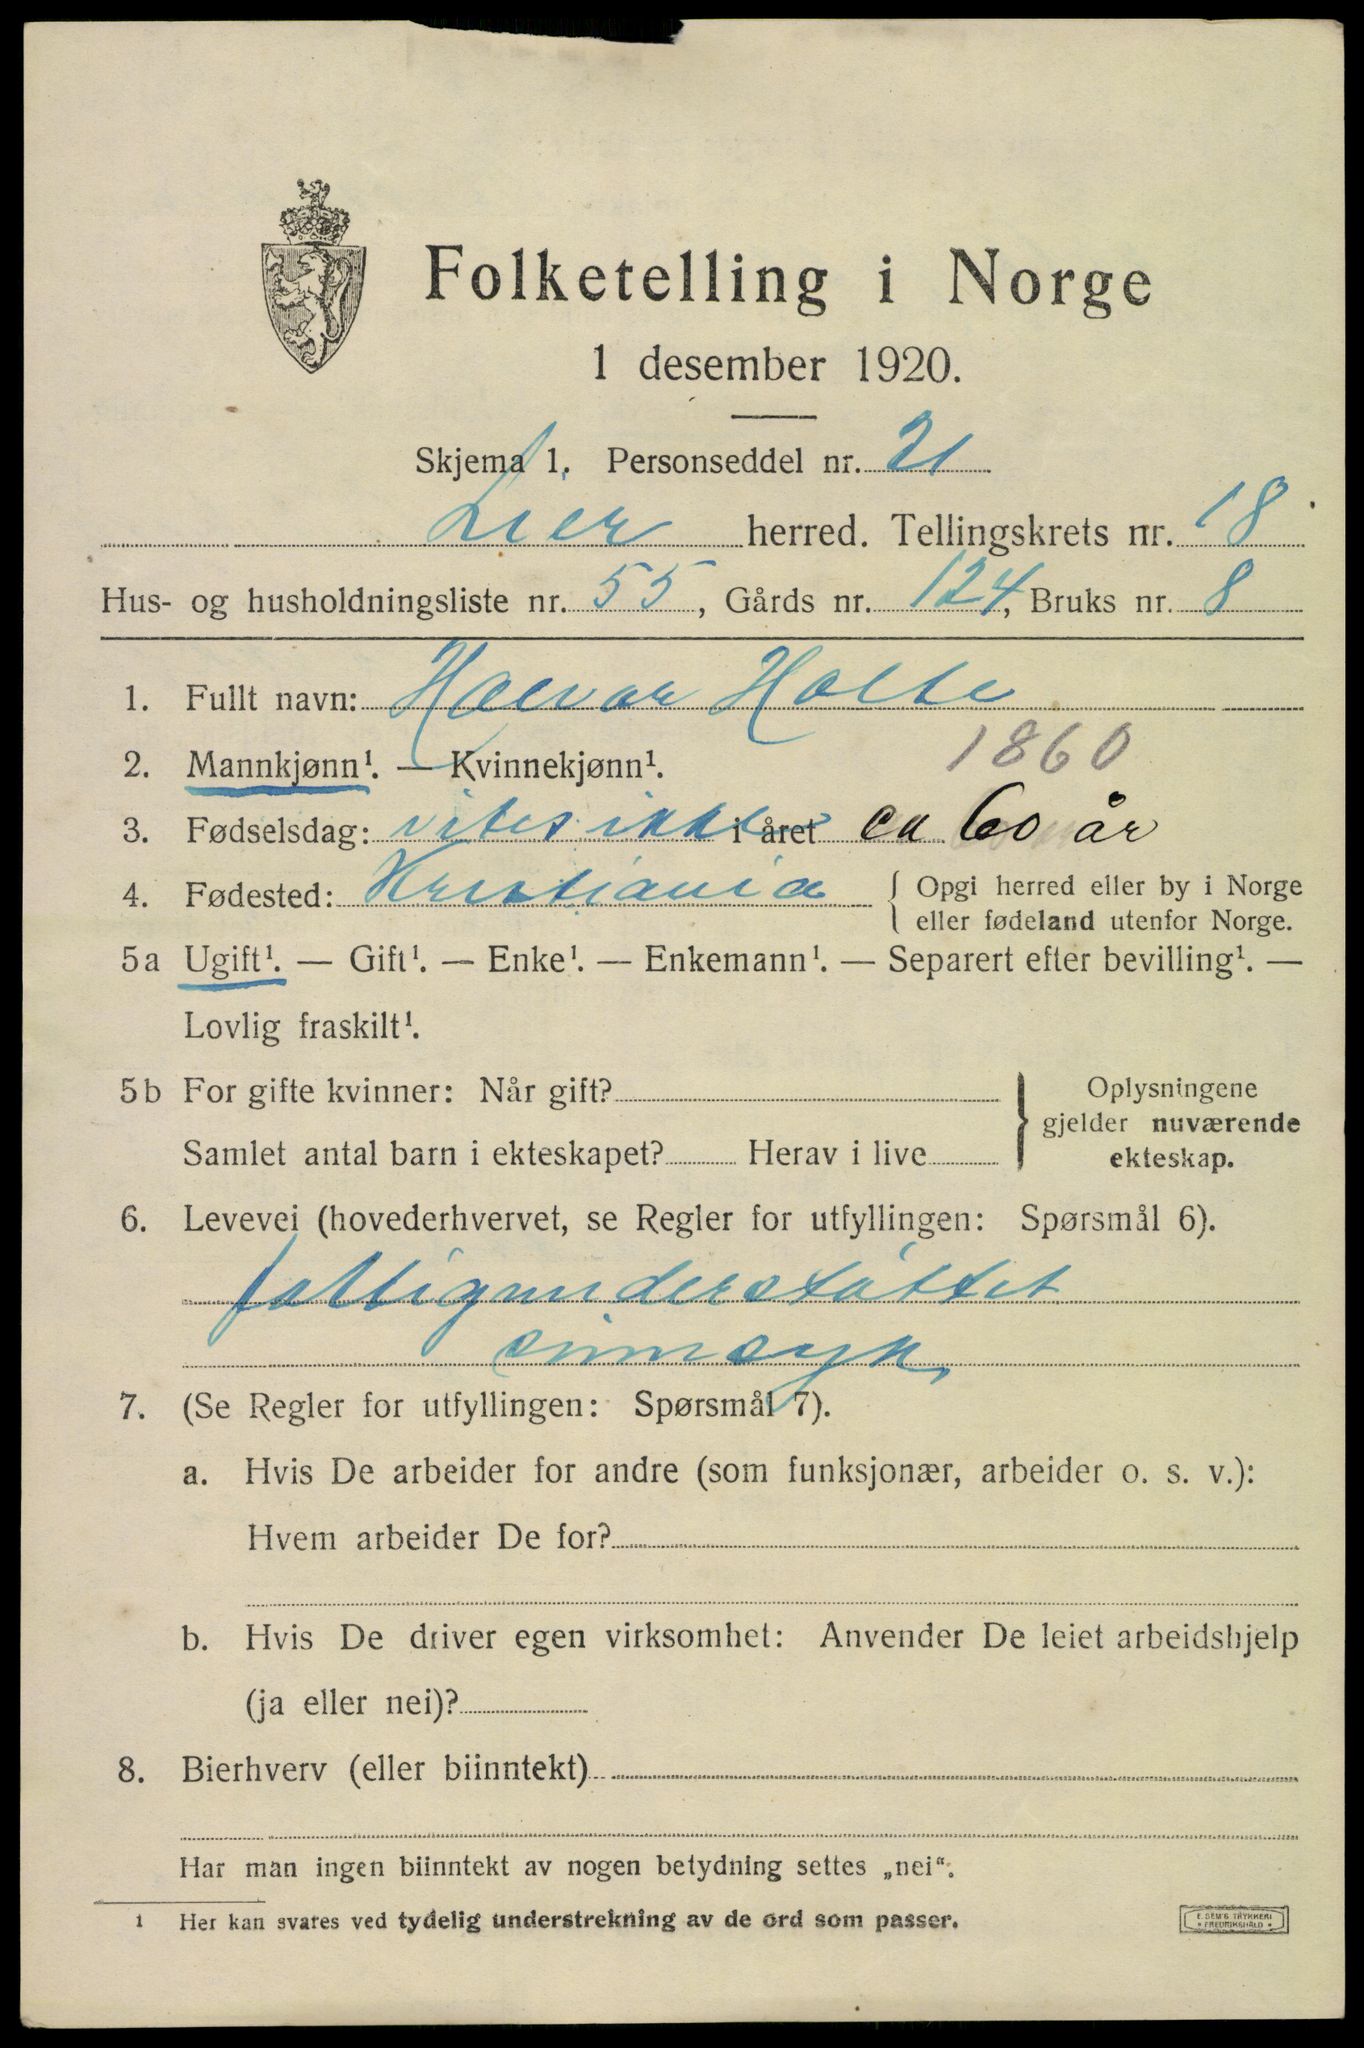 Folketelling i Norge
1 desember 1920.
Skjema 1. Personseddel nr. 21
Lier herred. Tellingskrets nr. 18
Hus- og husholdningsliste nr. 55, Gårds nr. 124, Bruks nr. 8
1. Fullt navn: Halvor Holte
1860
2. Mannkjønn¹. — Kvinnekjønn¹.
3. Fødselsdag: vites ikke i året ca 60 år
4. Fødested: Kristiania { Opgi herred eller by i Norge
eller fødeland utenfor Norge.
5a Ugift¹. — Gift¹. — Enke¹. — Enkemann¹. — Separert efter bevilling¹. —
Lovlig fraskilt¹.
5b For gifte kvinner: Når gift?
Samlet antal barn i ekteskapet? Herav i live
} Oplysningene
gjelder nuværende
ekteskap.
6. Levevei (hovederhvervet, se Regler for utfyllingen: Spørsmål 6).
fattigunderstøttet
sinnsyk
7. (Se Regler for utfyllingen: Spørsmål 7).
a. Hvis De arbeider for andre (som funksjonær, arbeider o. s. v.):
Hvem arbeider De for?
b. Hvis De driver egen virksomhet: Anvender De leiet arbeidshjelp
(ja eller nei)?
8. Bierhverv (eller biinntekt)
Har man ingen biinntekt av nogen betydning settes „nei“.
1 Her kan svares ved tydelig understrekning av de ord som passer.
E. SEM'S TRYKKERI
FREDRIKSHALD